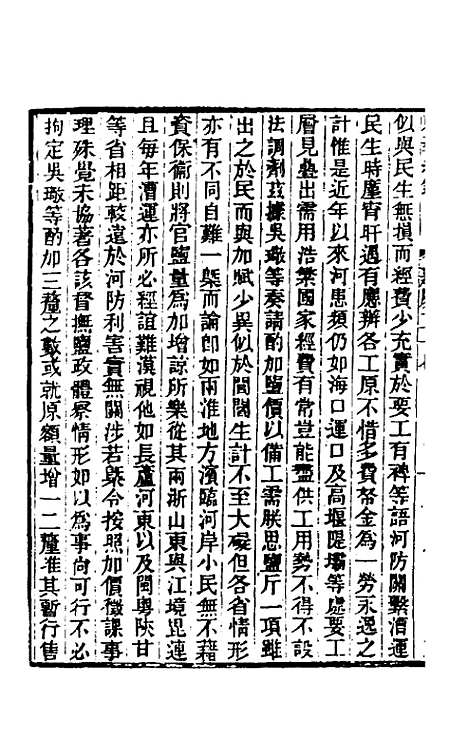 似與民生無損而經費少充實於要工有裨等語河防關繫漕運
民生時廑宵旰遇有應辦各工原不惜多費帑金為一勞永逸之
計惟是近年以來河患頻仍如海口運口及高堰隄壩等處要工
層見疊出需用浩繁國家經費有常豈能盡供工用勢不得不設
法調劑茲據吳璥等奏請酌加鹽價以備工需朕思鹽斤一項雖
出之於民而與加賦少異似於閭閻生計不至大礙但各省情形
亦有不同自難一槩而論卽如兩淮地方濱臨河岸小民無不藉
資保衞則將官鹽量為加增諒所樂從其兩浙山東與江境毘連
且每年漕運亦所必經誼難漠視他如長蘆河東以及閩粵陝甘
等省相距較遠於河防利害實無關涉若槩令按照加價徵課事
理殊覺未協著各該督撫鹽政體察情形如以為事尚可行不必
拘定吳璥等酌加三釐之數或就原額量增一二釐准其暫行售